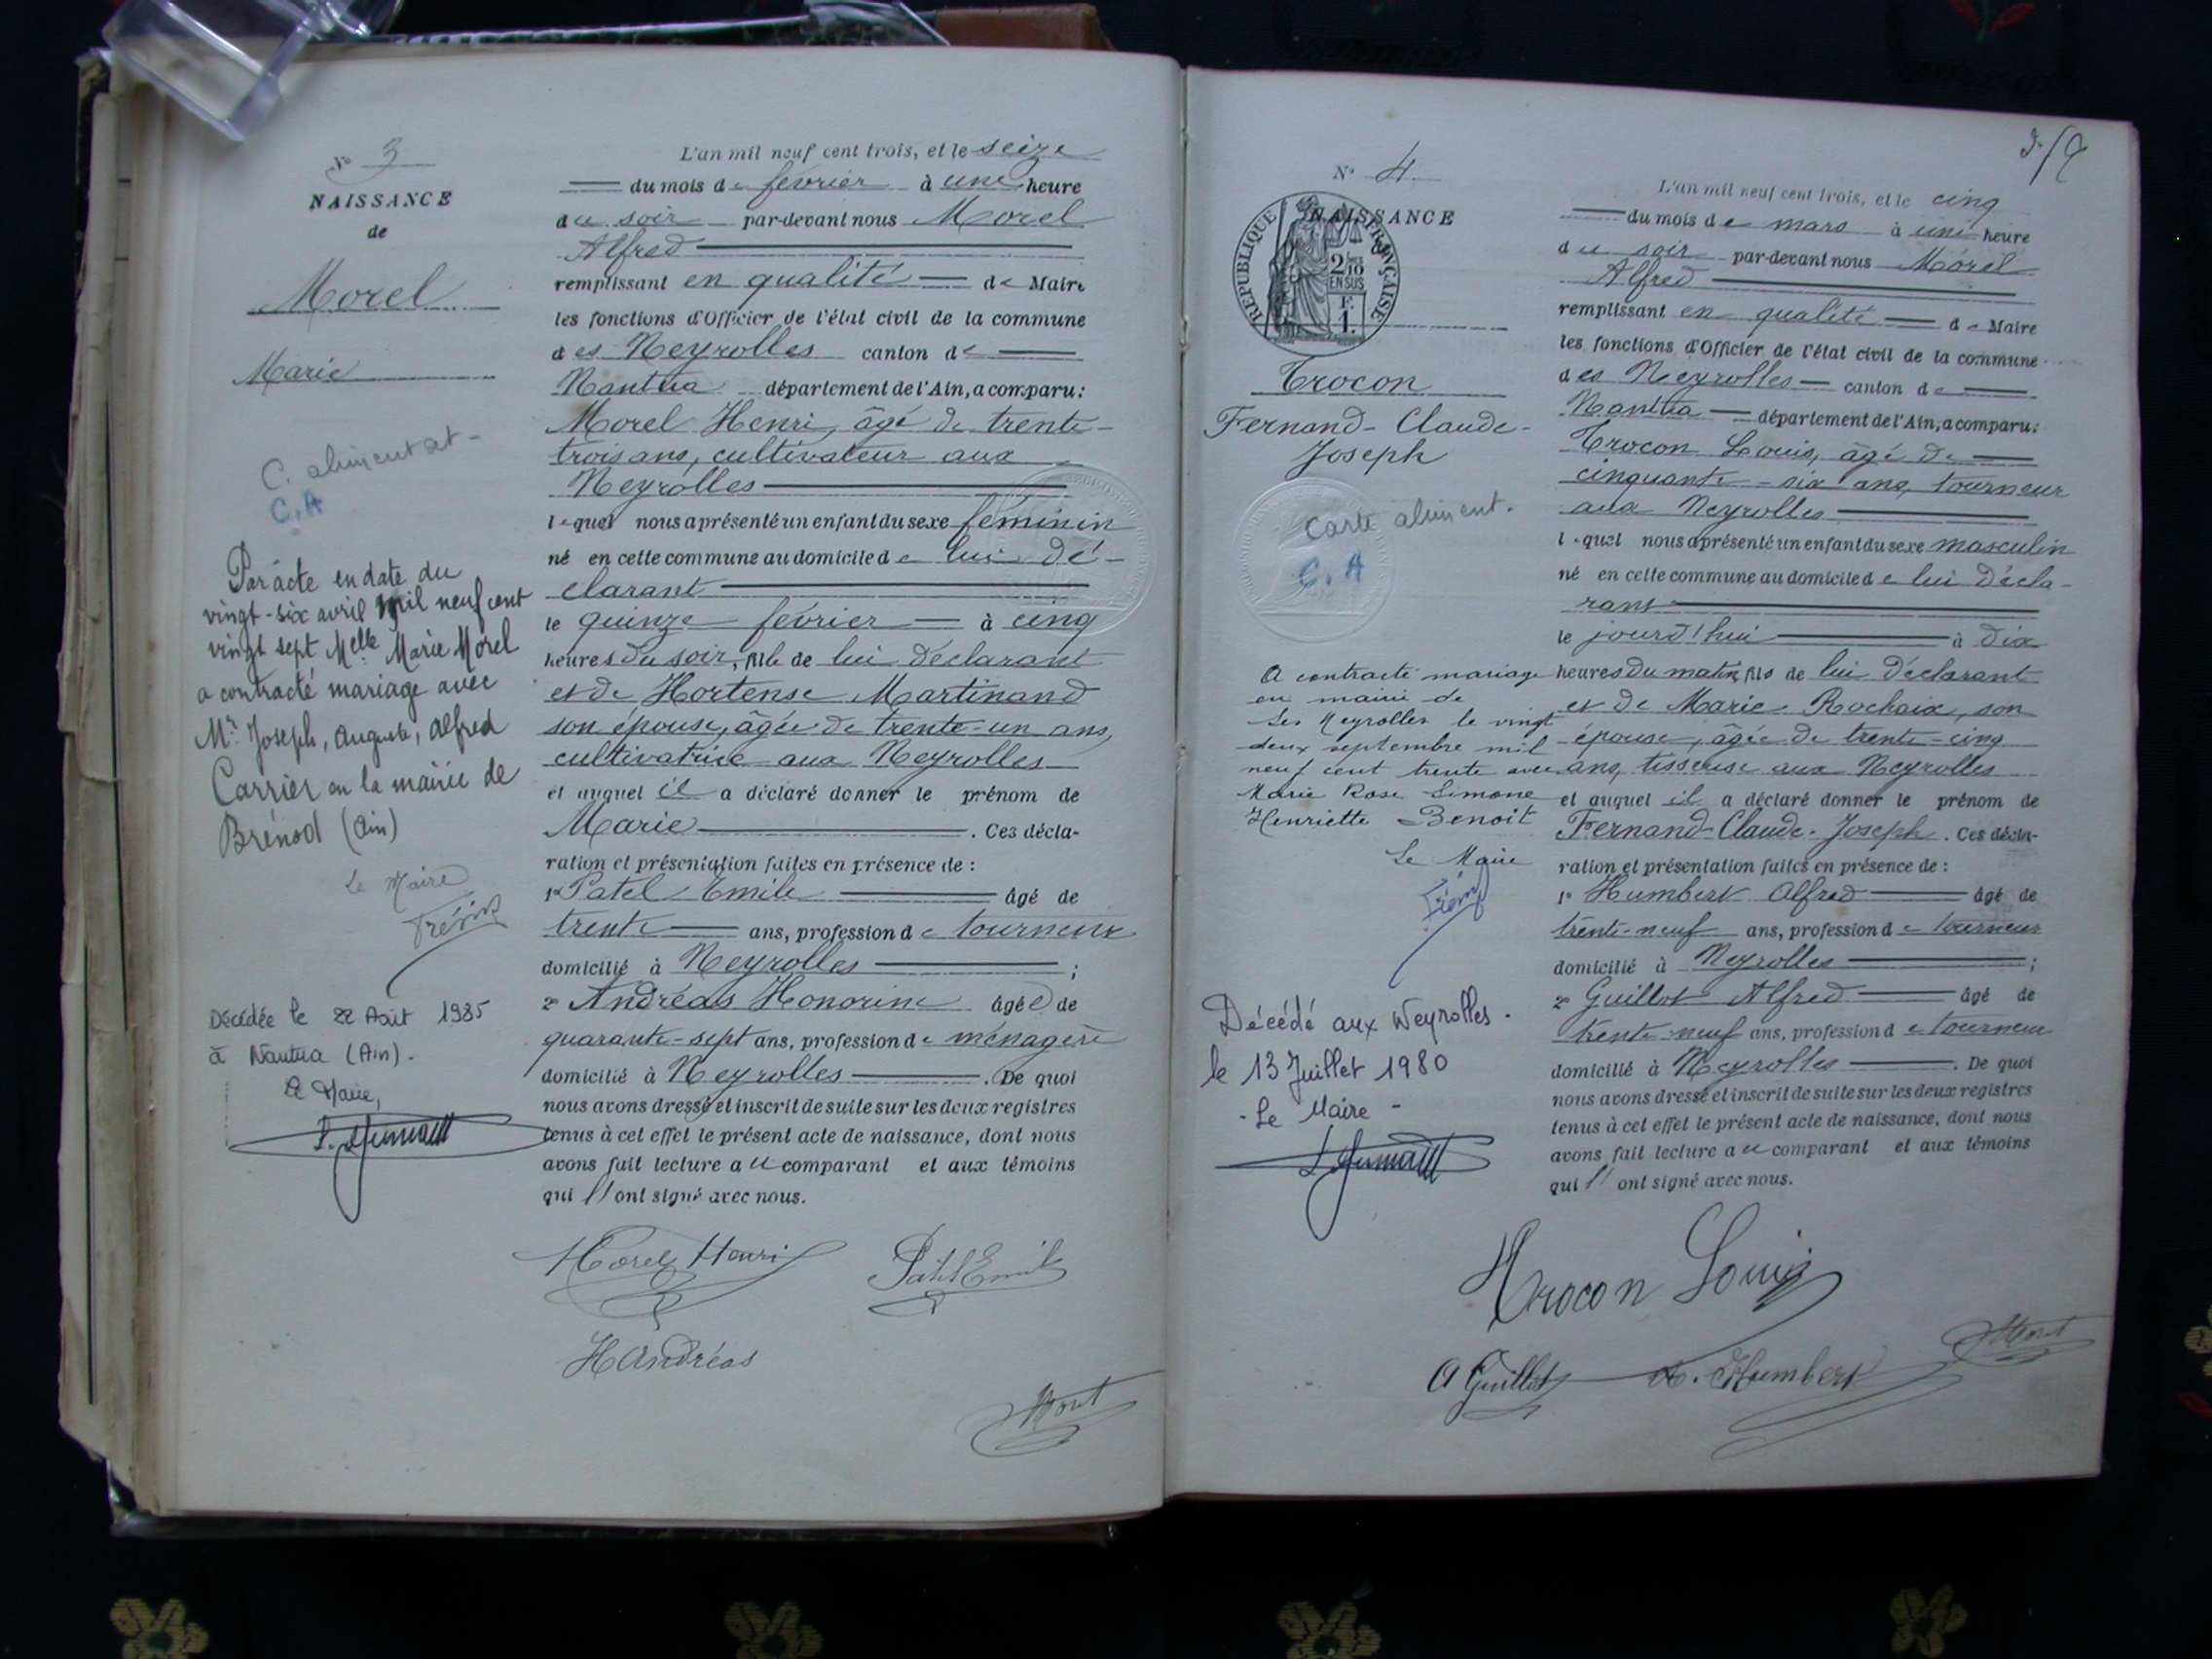 N° 3
NAISSANCE
de
Morel
Marie
C. alimentat-
C.A
Par acte en date du
vingt-six avril mil neuf cent
vingt sept Melle Marie Morel
a contracté mariage avec
Mr. Joseph, Auguste, Alfred
Carrier en la mairie de
Brénod (Ain)
Le Maire
Décédée le 22 Août 1985
à Nantua (Ain).
Le Maire,
L'an mil neuf cent trois, et le seize
du mois de février à une heure
du soir par-devant nous Morel
Alfred
remplissant en qualité de Maire
les fonctions d'Officier de l'état civil de la commune
des Neyrolles canton de
Nantua département de l'Ain, a comparu:
Morel Henri, âgé de trente-
trois ans, cultivateur aux
Neyrolles
lequel nous a présenté un enfant du sexe féminin
né en cette commune au domicile de lui dé-
clarant
le quinze février à cinq
heures du soir, fille de lui déclarant
et de Hortense Martinand
son épouse, âgée de trente-un ans,
cultivatrice aux Neyrolles
et auquel il a déclaré donner le prénom de
Marie. Ces décla-
ration et présentation faites en présence de :
1° Patel Emile âgé de
trente ans, profession de tourneur
domicilié à Neyrolles ;
2° Andréas Honorine âgée de
quarante-sept ans, profession de ménagère
domicilié à Neyrolles. De quoi
nous avons dressé et inscrit de suite sur les deux registres
tenus à cet effet le présent acte de naissance, dont nous
avons fait lecture au comparant et aux témoins
qui l'ont signé avec nous.
Morel Henri Patel Emile
H Andréas
N° 4
NAISSANCE
REPUBLIQUE FRANÇAISE
2/10
EN SUS
F.
1.
Trocon
Fernand-Claude-
Joseph
Carte aliment.
C.A
A contracté mariage
en mairie de
Les Neyrolles le vingt
deux septembre mil
neuf cent trente avec
Marie Rose Simone
Henriette Benoit
Le Maire
Décédé aux Neyrolles.
le 13 Juillet 1980
- Le Maire -
L'an mil neuf cent trois, et le cinq
du mois de mars à une heure
du soir par-devant nous Morel
Alfred
remplissant en qualité de Maire
les fonctions d'Officier de l'état civil de la commune
des Neyrolles canton de
Nantua département de l'Ain, a comparu:
Trocon Louis, âgé de
cinquante-six ans, tourneur
aux Neyrolles
lequel nous a présenté un enfant du sexe masculin
né en cette commune au domicile de lui décla-
rant
le jourd'hui à dix
heures du matin, fils de lui déclarant
et de Marie Rochaix, son
épouse, âgée de trente-cinq
ans, tisseuse aux Neyrolles
et auquel il a déclaré donner le prénom de
Fernand-Claude-Joseph. Ces décla-
ration et présentation faites en présence de :
1° Humbert Alfred âgé de
trente-neuf ans, profession de tourneur
domicilié à Neyrolles ;
2° Guillot Alfred âgé de
trente-neuf ans, profession de tourneur
domicilié à Neyrolles. De quoi
nous avons dressé et inscrit de suite sur les deux registres
tenus à cet effet le présent acte de naissance, dont nous
avons fait lecture au comparant et aux témoins
qui l'ont signé avec nous.
Trocon Louis
A Guillot A. Humbert